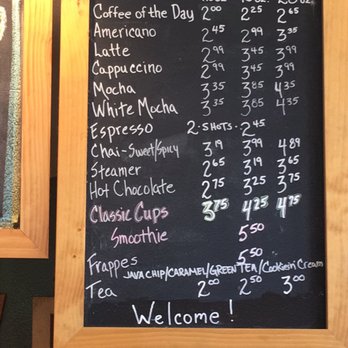 Coffee of the Day 2.00 2.25 2.65
Americano 2.45 2.99 3.35
Latte 2.99 3.45 3.99
Cappuccino 2.99 3.45 3.99
Mocha 3.35 3.85 4.35
White Mocha 3.35 3.85 4.35
Espresso 2-SHOTS- 2.45
Chai-Sweet/Spicy 3.19 3.99 4.89
Steamer 2.65 3.19 3.65
Hot Chocolate 2.75 3.25 3.75
Classic Cups 3.75 4.25 4.75
Smoothie 5.50
Frappes 5.50
JAVA CHIP/CARAMEL/GREEN TEA/Cookies n' Cream
Tea 2.00 2.50 3.00
Welcome!